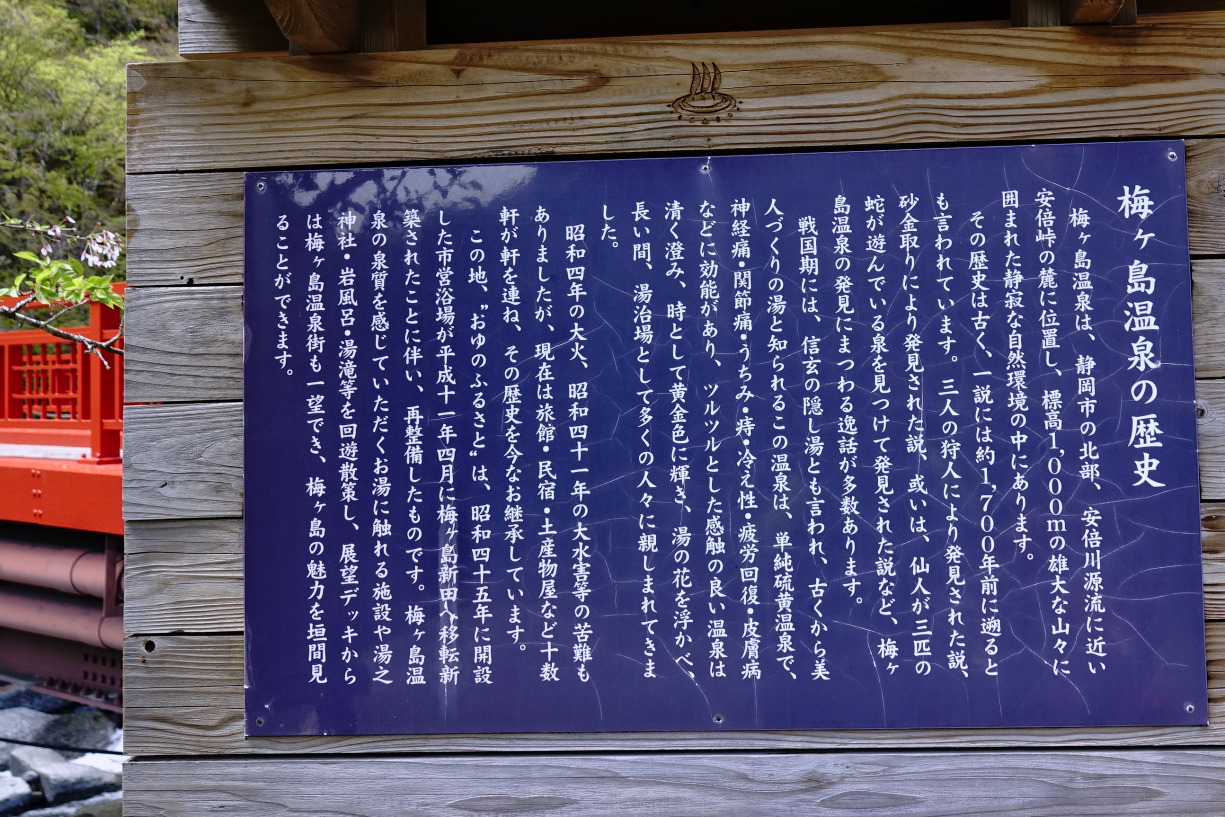 梅ヶ島温泉の歴史
梅ヶ島温泉は、静岡市の北部、安倍川源流に近い
安倍峠の麓に位置し、標高1,000mの雄大な山々に
囲まれた静寂な自然環境の中にあります。
その歴史は古く、一説には約1,700年前に遡ると
も言われています。三人の狩人により発見された説、
砂金取りにより発見された説、或いは、仙人が三匹の
蛇が遊んでいる泉を見つけて発見された説など、梅ヶ
島温泉の発見にまつわる逸話が多数あります。
戦国期には、信玄の隠し湯とも言われ、古くから美
人づくりの湯と知られるこの温泉は、単純硫黄温泉で、
神経痛・関節痛・うちみ・痔・冷え性・疲労回復・皮膚病
などに効能があり、ツルツルとした感触の良い温泉は
清く澄み、時として黄金色に輝き、湯の花を浮かべ、
長い間、湯治場として多くの人々に親しまれてきま
した。
昭和四年の大火、昭和四十一年の大水害等の苦難も
ありましたが、現在は旅館・民宿・土産物屋など十数
軒が軒を連ね、その歴史を今なお継承しています。
この地、〝おゆのふるさと〟は、昭和四十五年に開設
した市営浴場が平成十一年四月に梅ヶ島新田へ移転新
築されたことに伴い、再整備したものです。梅ヶ島温
泉の泉質を感じていただくお湯に触れる施設や湯之
神社・岩風呂・湯滝等を回遊散策し、展望デッキから
は梅ヶ島温泉街も一望でき、梅ヶ島の魅力を垣間見
ることができます。